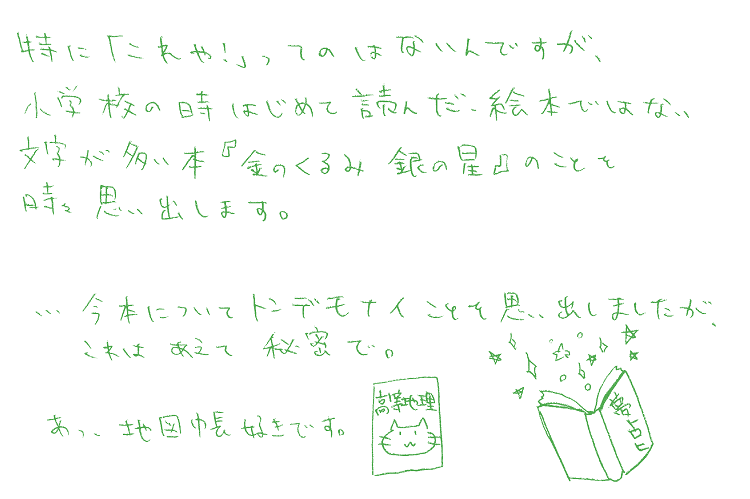 特に「これや!」ってのはないんですが、
小学校の時はじめて読んだ、絵本ではない
文字が多い本『金のくるみ 銀の星』のことを
時々思い出します。
… 今本についてトンデモナイことを思い出しましたが、
これはあえて秘密で。
あっ、地図帳好きです。
高等地理
夢占い